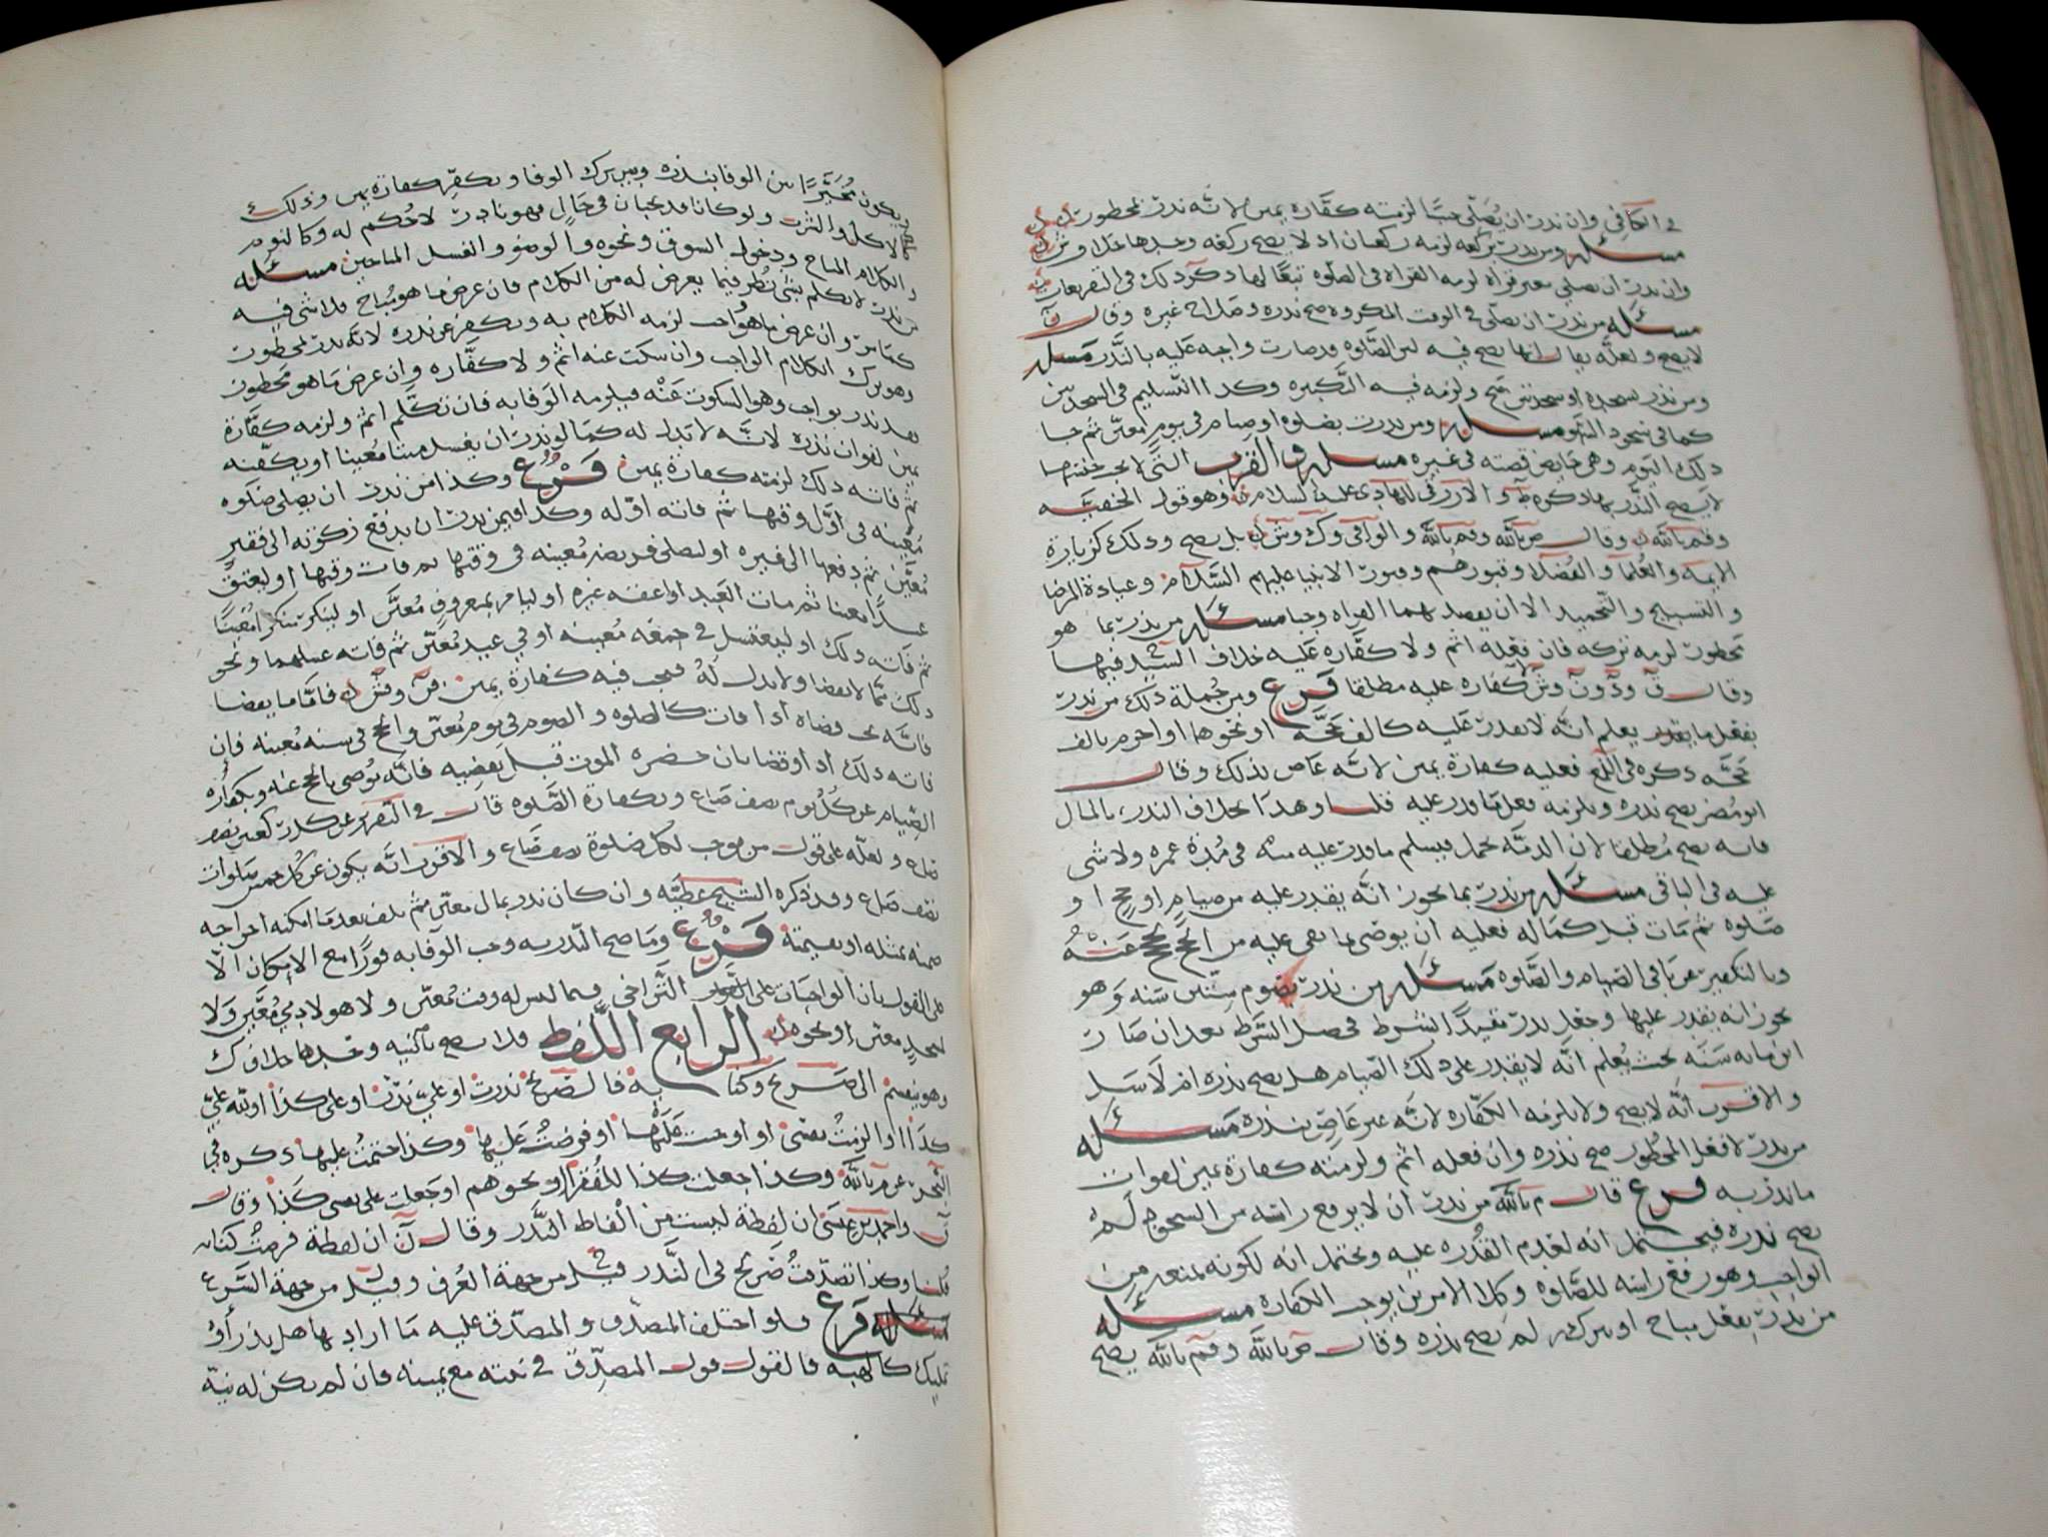 في الكافي وان ندر ان يصلي جنبا لزمته كفارة يمين لانه ندر بمحظور
مسئله ومن ندر بركعة لزمه ركعتان اد لا يصح ركعة وحدها خلاف وش
وان ندر ان يصلي بغير قراة لزمه القراة في الصلوه تبعا لها دكر دلك في التفريعات
مسئله من ندر ان يصلي في الوقت المكروه صح ندره وصلا في غيره وقال
لا يصح ولعله يقال انها تصح فيه لان الصلوه قد صارت واجبه عليه بالندر مسله
ومن نذر بسجده او سجدتين صح ولزمه فيه التكبيره وكدا التسليم في السجدتين
كما في سجود السهو مسئله ومن ندرت بصلوه او صيام في يوم معين ثم حا
دلك اليوم وهي حايض قضته في غيره مسله والقرب التي لا يجب جنسها
لا يصح الندر بها دكره ط والازرقي للهادي عليه السلام وهو قول الحنفيه
وقم بالله وقال ص بالله وقم بالله والوافي وك وش بل يصح ودلك كزيارة
الايمه والعلما والفضلا وقبورهم وقبور الانبيا عليهم السلام وعيادة المرضا
والتسبيح والتحميد الا ان يقصد بهما القراه وجبا مسئله من ندر بما هو
محظور لزمه تركه فان فعله اثم ولا كفاره عليه خلاف السيد فيهما
وقال ن ود ون وش لا كفاره عليه مطلقا فرع ومن جملة دلك من ندر
بفعل ما يقدر يعلم انه لا يقدر عليه كالف حجه او نحوها او احرم بالف
حجه دكره في اللمع فعليه كفارة يمين لانه عاص بذلك وقال
ابو مضر يصح ندره ويلزمه فعل ما قدر عليه قلنا وهدا بخلاف الندر بالمال
فانه يصح مطلقا لان الدمه تحمل فيسلم ما قدر عليه منه في مدة عمره ولا شي
عليه في الباقي مسئله من ندر بما يجوز انه يقدر عليه من صيام او حج او
صلوه ثم مات قبل كماله فعليه ان يوصى بما بقي عليه من الحج يحج عنه
وبالتكفير عن باقي الصيام والصلوه مسله من ندر بصوم ستين سنه وهو
يجوز انه يقدر عليها وجعل ندره مقيدا بشرط فحصل الشرط بعد ان صار
ابن مايه سنه بحيث يعلم انه لا يقدر على دلك الصيام هل يصح ندره ام لا سل
والاقرب انه لا يصح ولا يلزمه الكفاره لانه غير عاص بنذره مسئله
من ندر لا فعل المحظور صح نذره وان فعله اثم ولزمته كفارة يمين لفوات
ما نذر به فرع قال م بالله من ندر ان لا يرفع راسه من السجود لم
يصح ندره فيحتمل انه لعدم القدره عليه ويحتمل انه لكونه يمنعه من
الواجب وهو رفع راسه للصلوه وكلا الامرين يوجب الكفاره مسئله
من ندر بفعل مباح او بتركه لم يصح نذره وقال ص بالله وقم بالله يصح
ويكون مخيرا بين الوفا بنذره وبين ترك الوفا ويكفر كفارة يمين وذلك
كالاكل والشرب ولو كانا قد يجبان في حال فهو نادر لا حكم له وكالنوم
والكلام المباح ودخول السوق ونحوه والوضو والغسل المباحين مسئله
من ندر لا يكلم بشي نظر فيما يعرض له من الكلام فان عرض ما هو مباح فلا شي فيه
كما مر وان عرض ما هو واجب لزمه الكلام به ويكفر عن ندره لانه ندر بمحظور
وهو ترك الكلام الواجب وان سكت عنه اثم ولا كفاره وان عرض ما هو محظور
فقد نذر بواجب وهو السكوت عنه فيلزمه الوفا به فان تكلم اثم ولزمه كفارة
يمين لفوات نذره لانه لا بدل له كما لو ندر ان يغسل ميتا معينا او يكفنه
ثم فاته دلك لزمته كفارة يمين فرع وكذا من ندر ان يصلي صلوه
معينه في اول وقتها ثم فاته اوله وكدا فيمن ندر ان يدفع زكوته الى فقير
معين ثم دفعها الى غيره او ليصلي فريضه معينه في وقتها ثم فات وقتها او ليعتق
عبدا معينا ثم مات العبد او اعتقه غيره او ليامر بمعروف معين او لينكر منكرا معينا
ثم فاته دلك او ليغتسل في جمعه معينه او في عيد معين ثم فاته غسلهما ونحو
دلك مما لا يقضا ولا بدل له فيجب فيه كفارة يمين فن وفش ك فاما ما يقضا
فانه يجب قضاه ادا فات كالصلوه والصوم في يوم معين والحج في سنه معينه فان
فاته دلك ادا وقضا بان حضره الموت قبل يقضيه فانه يوصي بالحج عنه وبكفارة
الصيام عن كل يوم نصف صاع وبكفارة الصلوه قال في التقرير عن كل ركعتين نصف
صاع ولعله على قول من يوجب لكل صلوة نصف صاع والاقرب انه يكون عن كل خمس صلوات
نصف صاع وقد ذكره الشيخ عطيه وان كان ندر بمال معين ثم تلف بعد ما امكنه اخراجه
ضمنه بمثله او بقيمته فرع وما صح النذر به وجب الوفا به فورا مع الامكان الا
على القول بان الواجبات على التراخي فيما ليس له وقت معين ولا هو لادمي معين ولا
لمسجد معين او نحوه الرابع اللفظ فلا يصح بالنيه وحدها خلاف ك
وهو ينقسم الى صريح وكنايه فالصريح ندرت او علي ندر او علي كذا او لله علي
كدا او الزمت نفسي او اوجبت عليها او فرضت عليها وكذا حتمت عليها دكره في
البحر عن م بالله وكذا جعلت كذا للفقرا ونحوهم او جعلت على نفسي كذا وقال
ن واحمد بن عيسى ان لفظة ليست من الفاظ الندر وقال ن ان لفظة فرضت كنايه
قلنا وكذا تصدقت صريح في الندر قيل من جهة العرف وقيل من جهة الشرع
فرع فلو اختلف المتصدق والمتصدق عليه ما اراد بها هل نذر او
تمليك كالهبه فالقول قول المتصدق في نيته مع يمينه فان لم يكن له نية